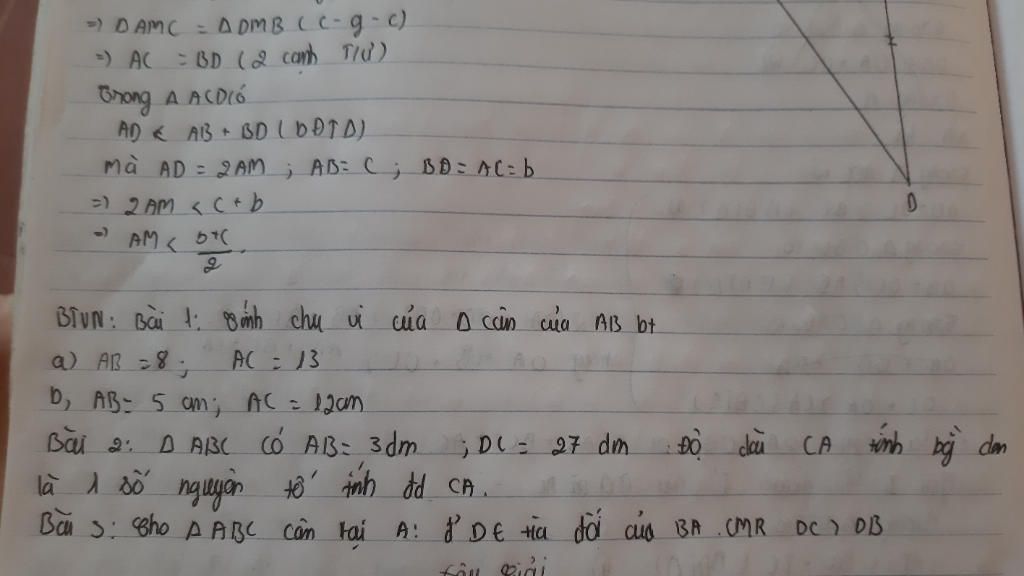 =) ΔAMC = ΔDMB (c-g-c)
=) AC = BD (2 cạnh T/ư)
Trong Δ ACD có
AD < AB + BD (bĐTΔ)
mà AD = 2AM ; AB = c ; BD = AC = b
=) 2AM < c + b
=) AM < b+c/2
D
BTVN: Bài 1: Tính chu vi của Δ cân của AB bt
a) AB = 8 ; AC = 13
b, AB = 5 cm ; AC = 12cm
Bài 2: Δ ABC có AB = 3dm ; DC = 27 dm. Độ dài CA tính bg dm
là 1 số nguyên tố tính đd CA.
Bài 3: Cho Δ ABC cân tại A: D ∈ tia đối của BA. CMR DC > DB
giải